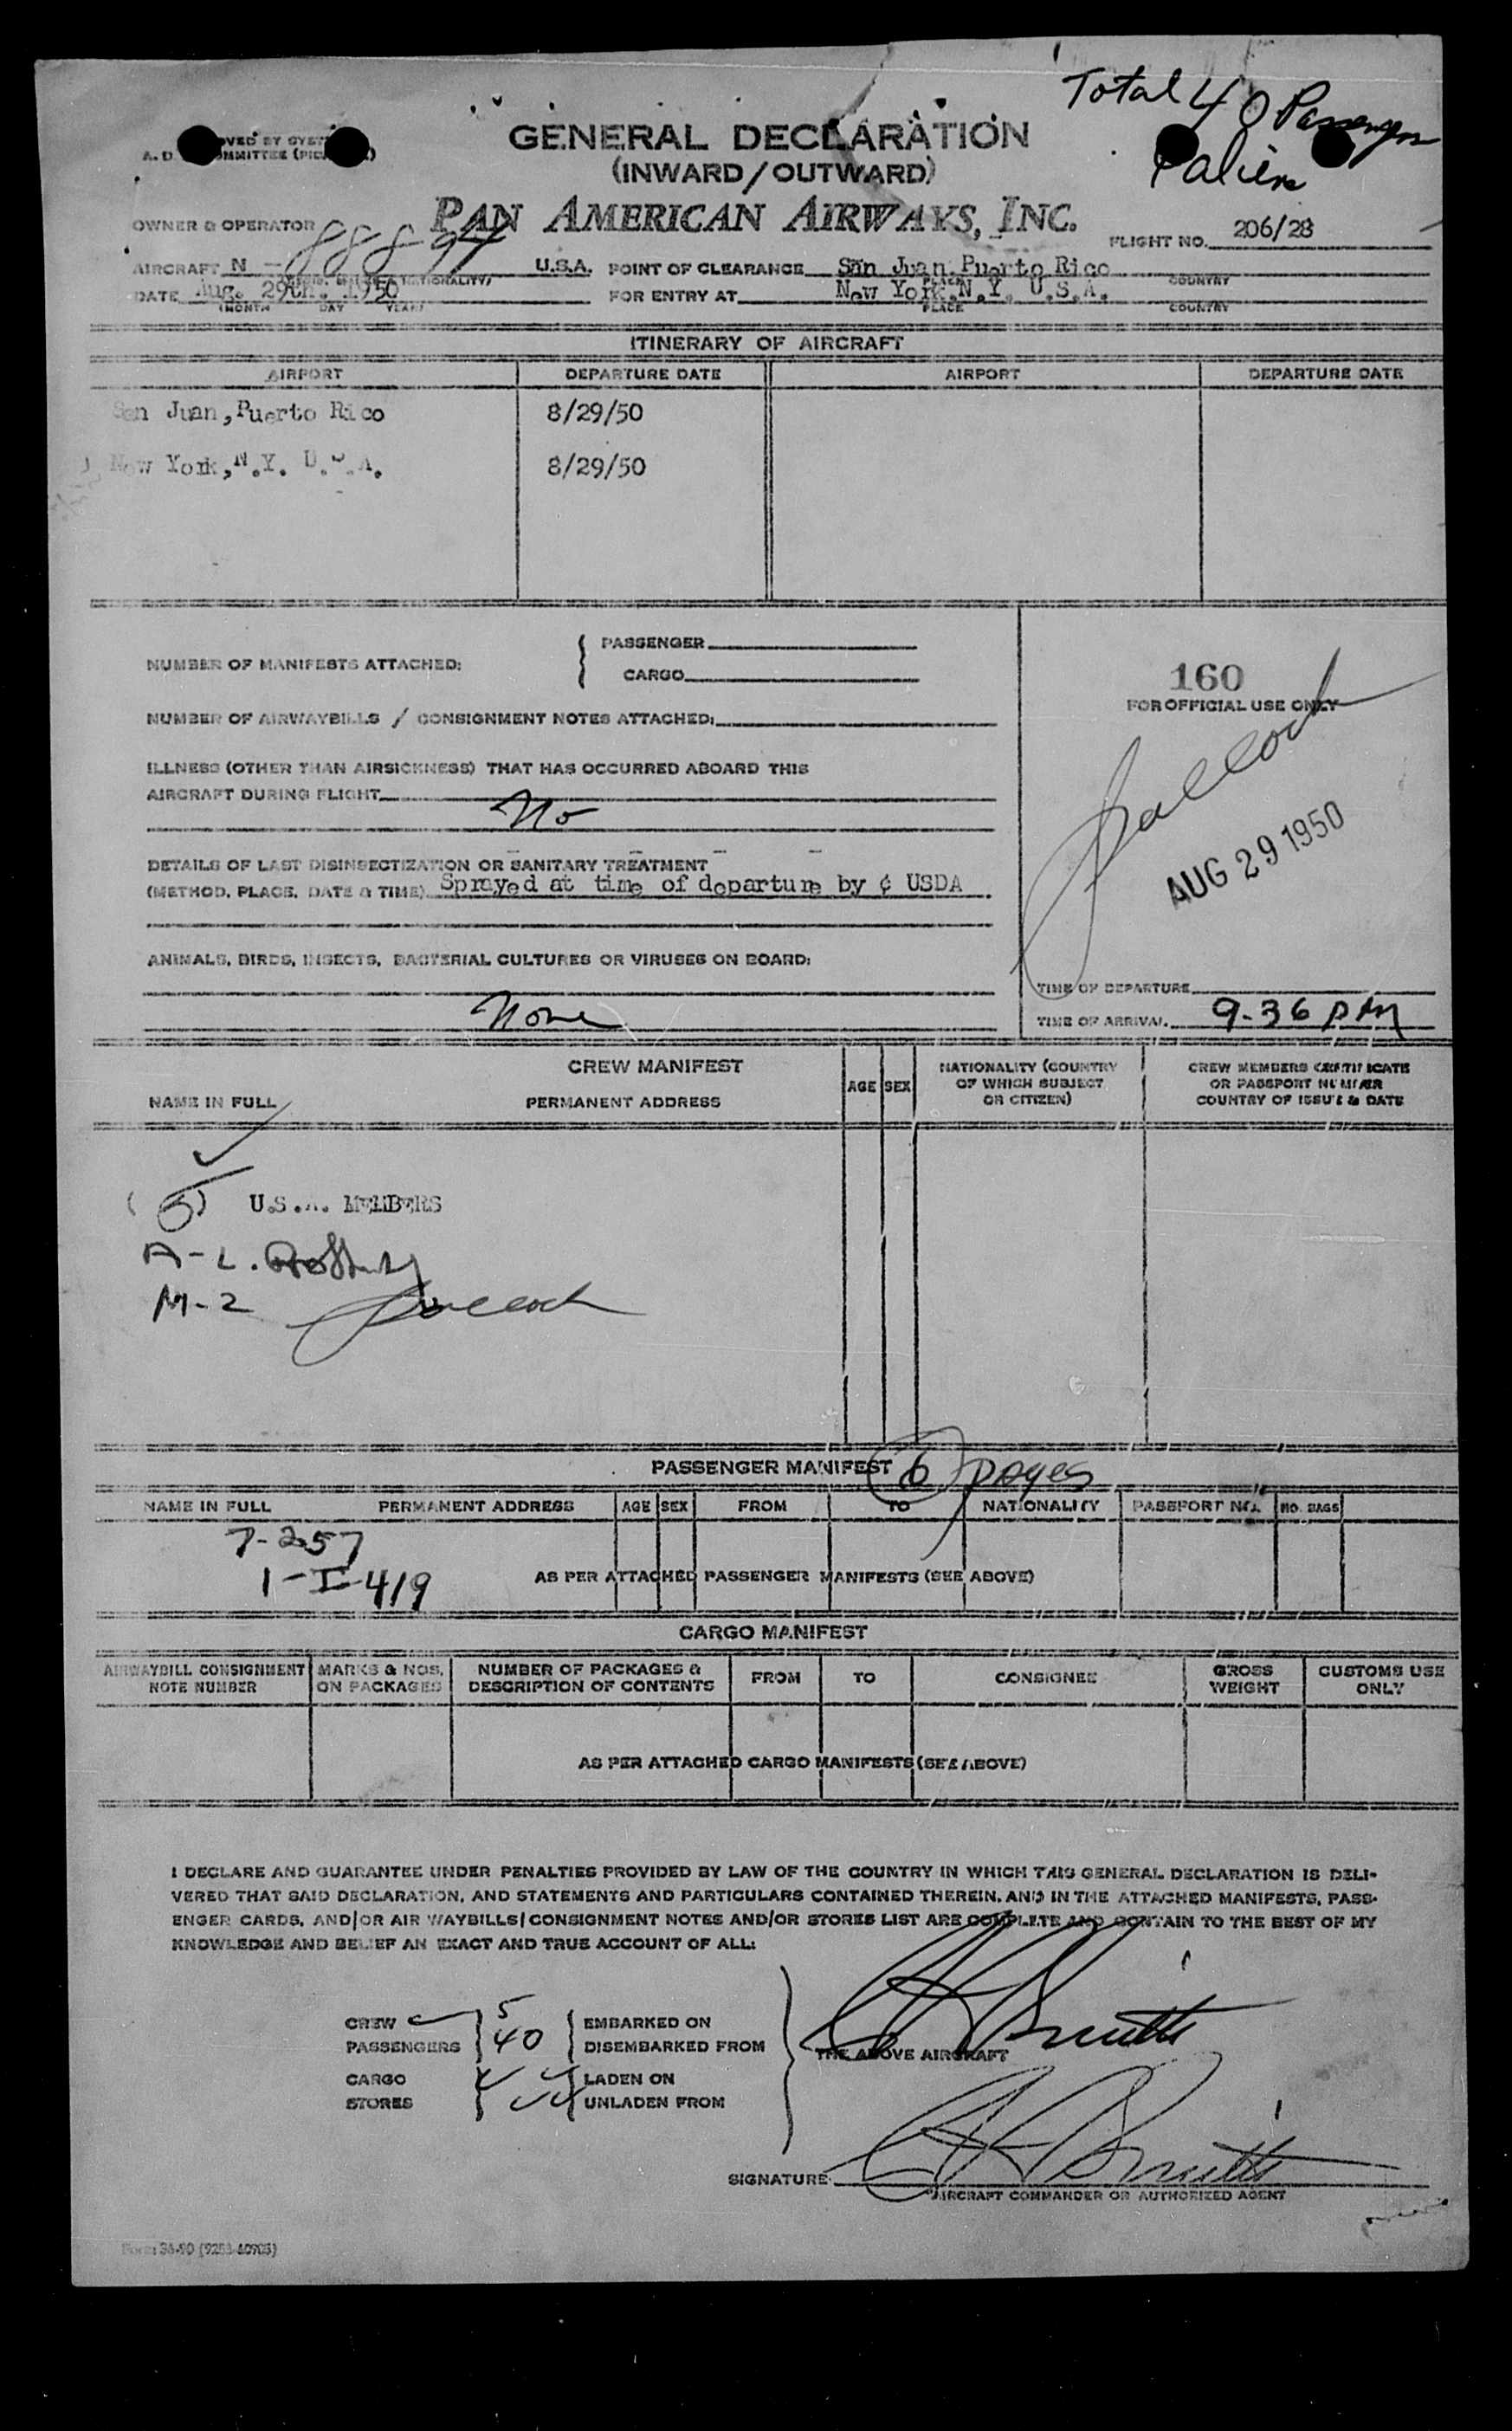 Total 40 Passengers
GENERAL DECLARATION
(INWARD/OUTWARD)
PAN AMERICAN AIRWAYS, INC.
OWNER & OPERATOR
FLIGHT NO. 206/28
AIRCRAFT N - 88894 U.S.A. POINT OF CLEARANCE San Juan, Puerto Rico
PLACE COUNTRY
DATE Aug. 29th. 1950 FOR ENTRY AT New York, N.Y. U.S.A.
(MONTH DAY YEAR) PLACE COUNTRY
ITINERARY OF AIRCRAFT
AIRPORT DEPARTURE DATE AIRPORT DEPARTURE DATE
San Juan, Puerto Rico 8/29/50
New York, N.Y. U.S.A. 8/29/50
NUMBER OF MANIFESTS ATTACHED: PASSENGER
CARGO
160
FOR OFFICIAL USE ONLY
NUMBER OF AIRWAYBILLS / CONSIGNMENT NOTES ATTACHED:
ILLNESS (OTHER THAN AIRSICKNESS) THAT HAS OCCURRED ABOARD THIS
AIRCRAFT DURING FLIGHT
No
AUG 29 1950
DETAILS OF LAST DISINSECTIZATION OR SANITARY TREATMENT
(METHOD, PLACE, DATE & TIME) Sprayed at time of departure by ¢ USDA
ANIMALS, BIRDS, INSECTS, BACTERIAL CULTURES OR VIRUSES ON BOARD:
None
TIME OF DEPARTURE
TIME OF ARRIVAL 9-36 PM
CREW MANIFEST
NAME IN FULL PERMANENT ADDRESS AGE SEX NATIONALITY (COUNTRY OF WHICH SUBJECT OR CITIZEN) CREW MEMBERS CERTIFICATE OR PASSPORT NUMBER COUNTRY OF ISSUE & DATE
(5) U.S.A. MEMBERS
A-L.
M-2
PASSENGER MANIFEST 6 pages
NAME IN FULL PERMANENT ADDRESS AGE SEX FROM TO NATIONALITY PASSPORT NO. NO. BAGS
7-257
1-I-419
AS PER ATTACHED PASSENGER MANIFESTS (SEE ABOVE)
CARGO MANIFEST
AIRWAYBILL CONSIGNMENT NOTE NUMBER MARKS & NOS. ON PACKAGES NUMBER OF PACKAGES & DESCRIPTION OF CONTENTS FROM TO CONSIGNEE GROSS WEIGHT CUSTOMS USE ONLY
AS PER ATTACHED CARGO MANIFESTS (SEE ABOVE)
I DECLARE AND GUARANTEE UNDER PENALTIES PROVIDED BY LAW OF THE COUNTRY IN WHICH THIS GENERAL DECLARATION IS DELI-
VERED THAT SAID DECLARATION, AND STATEMENTS AND PARTICULARS CONTAINED THEREIN, AND IN THE ATTACHED MANIFESTS, PASS-
ENGER CARDS, AND/OR AIR WAYBILLS/CONSIGNMENT NOTES AND/OR STORES LIST ARE COMPLETE AND CONTAIN TO THE BEST OF MY
KNOWLEDGE AND BELIEF AN EXACT AND TRUE ACCOUNT OF ALL:
CREW 5 EMBARKED ON
PASSENGERS 40 DISEMBARKED FROM
THE ABOVE AIRCRAFT
CARGO LADEN ON
STORES UNLADEN FROM
SIGNATURE
AIRCRAFT COMMANDER OR AUTHORIZED AGENT